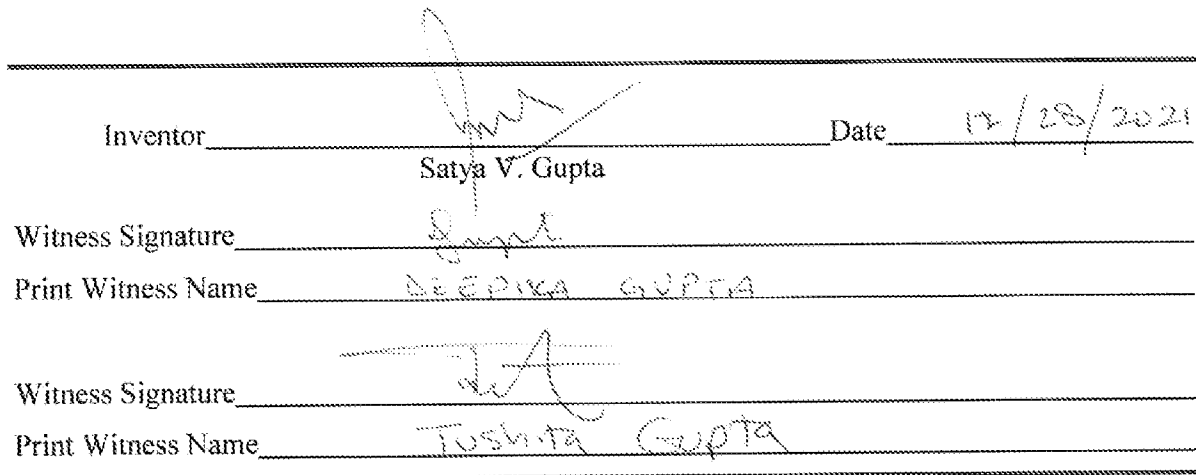 Inventor Date 12/28/2021
Satya V. Gupta
Witness Signature
Print Witness Name DEEPIKA GUPTA
Witness Signature
Print Witness Name Tushita Gupta